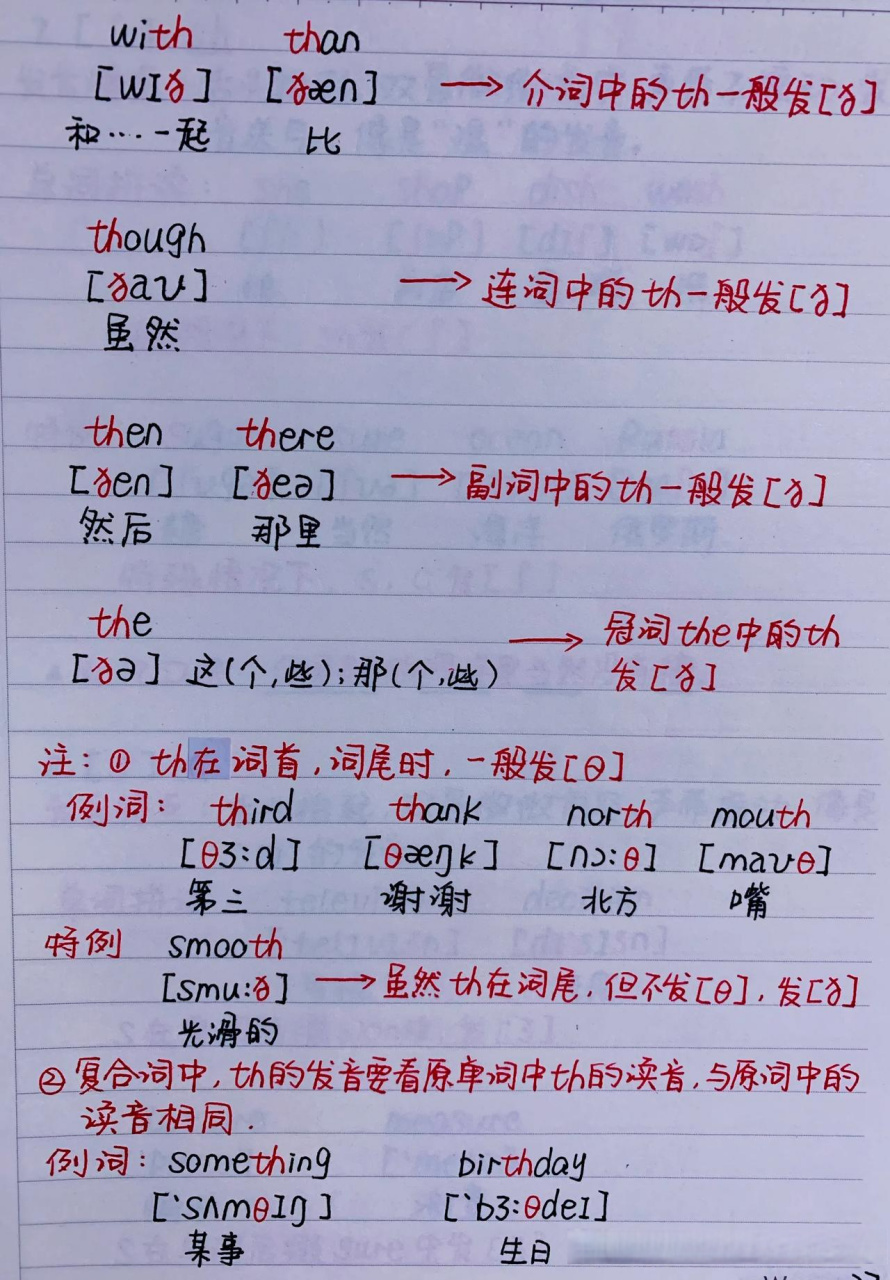 with than
[wɪð] [ðæn] → 介词中的th一般发[ð]
和····一起 比
though
[ðaʊ] → 连词中的th一般发[ð]
虽然
then there
[ðen] [ðeə] → 副词中的th一般发[ð]
然后 那里
the → 冠词the中的th
[ðə] 这(个,些);那(个,些) 发[ð]
注:① th在词首,词尾时,一般发[θ]
例词: third thank north mouth
[θɜ:d] [θæŋk] [nɔ:θ] [maʊθ]
第三 谢谢 北方 嘴
特例 smooth
[smu:ð] → 虽然th在词尾,但不发[θ],发[ð]
光滑的
② 复合词中,th的发音要看原单词中th的读音,与原词中的
读音相同.
例词: something birthday
[ˋsʌmθɪŋ] [ˋbɜ:θdeɪ]
某事 生日